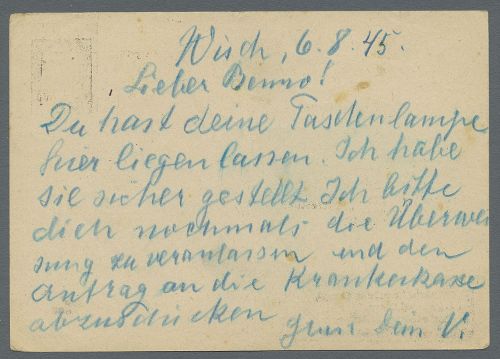 Wisch, 6.8.45.
Lieber Benno!
Du hast deine Taschenlampe
hier liegen lassen. Ich habe
sie sicher gestellt. Ich bitte
dich nochmals die Überwei
sung zu veranlassen und den
Antrag an die Krankenkasse
abzuschicken
Gruss Dein V.